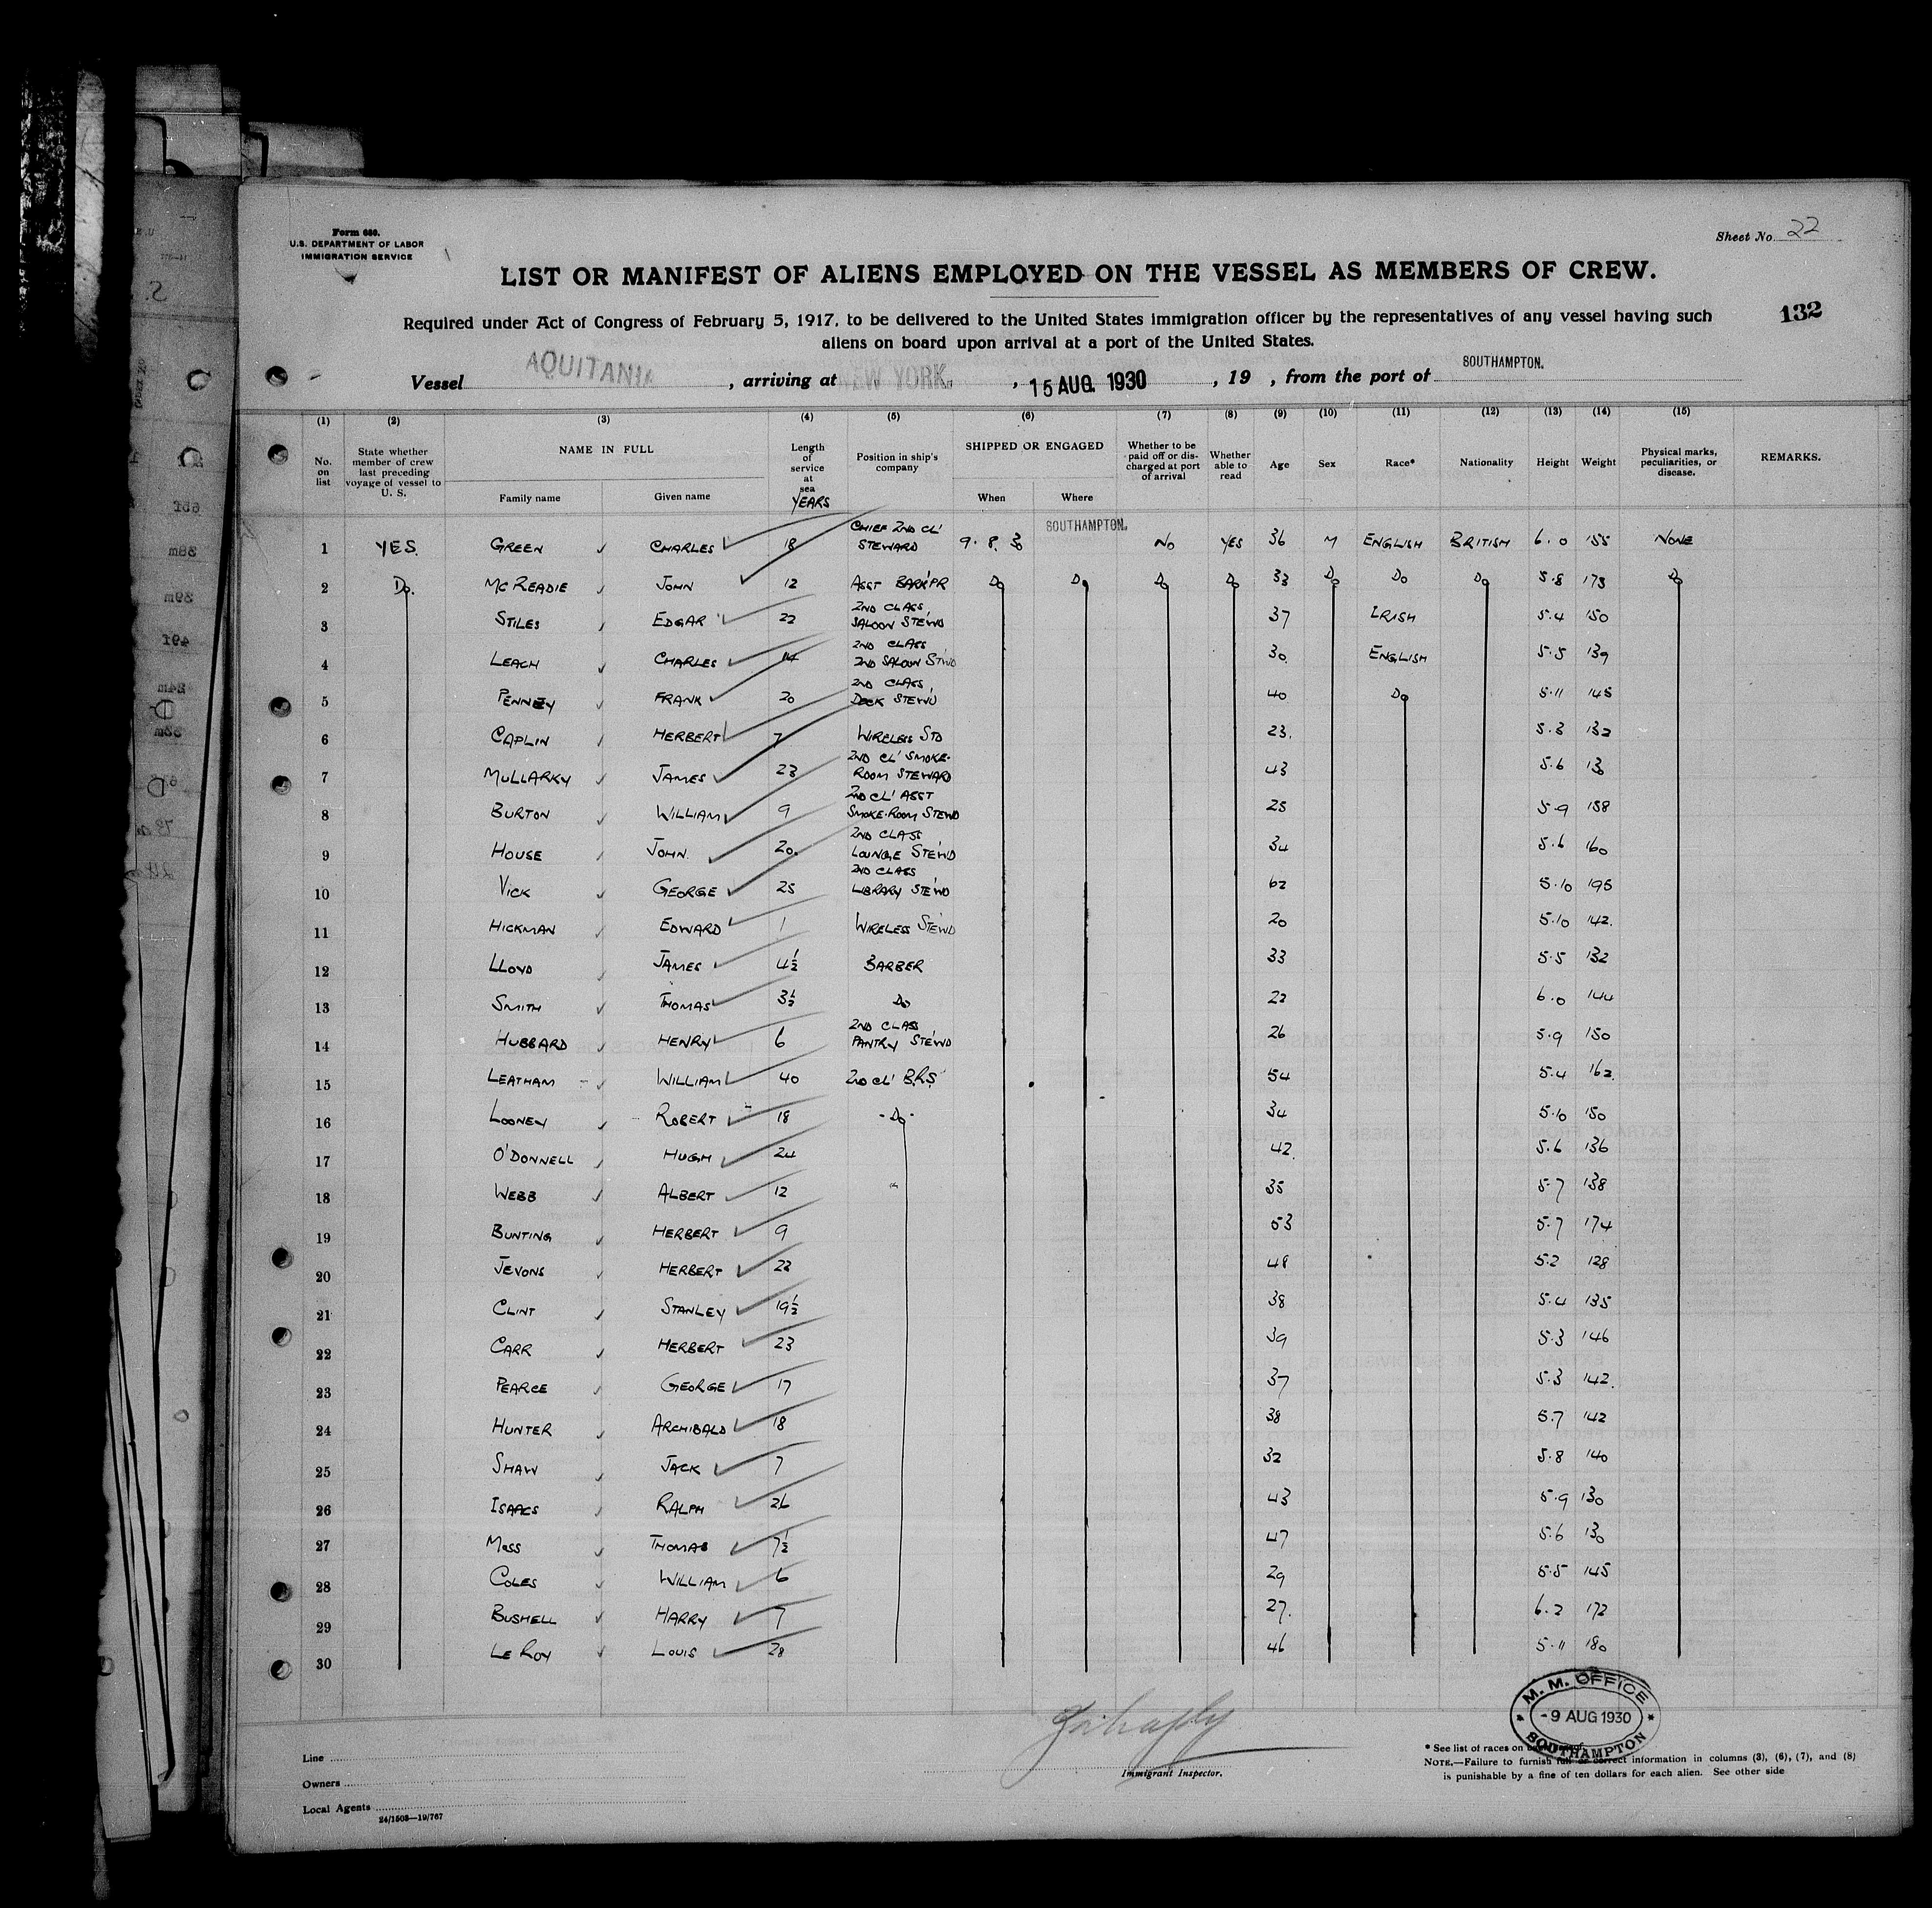 Form 680.
U.S. DEPARTMENT OF LABOR
IMMIGRATION SERVICE
Sheet No. 22
LIST OR MANIFEST OF ALIENS EMPLOYED ON THE VESSEL AS MEMBERS OF CREW.
132
Required under Act of Congress of February 5, 1917, to be delivered to the United States immigration officer by the representatives of any vessel having such
aliens on board upon arrival at a port of the United States.
Vessel AQUITANIA, arriving at NEW YORK., 15 AUG. 1930, 19 , from the port of SOUTHAMPTON.
(1) (2) (3) (4) (5) (6) (7) (8) (9) (10) (11) (12) (13) (14) (15)
No. on list
State whether member of crew last preceding voyage of vessel to U. S.
NAME IN FULL
Family name Given name
Length of service at sea YEARS
Position in ship's company
SHIPPED OR ENGAGED
When Where
Whether to be paid off or discharged at port of arrival
Whether able to read
Age Sex Race* Nationality Height Weight
Physical marks, peculiarities, or disease.
REMARKS.
1 YES. GREEN CHARLES 18 CHIEF 2ND CL' STEWARD 9.8.30 SOUTHAMPTON. NO YES 36 M ENGLISH BRITISH 6.0 155 NONE
2 Do. McREADIE JOHN 12 ASST BARK'PR Do Do Do Do 33 Do Do Do 5.8 173 Do
3 STILES EDGAR 22 2ND CLASS SALOON STEWD 37 IRISH 5.4 150
4 LEACH CHARLES 14 2ND CLASS 2ND SALOON STWD 30. ENGLISH 5.5 139
5 PENNEY FRANK 20 2ND CLASS DECK STEWD 40 Do 5.11 145
6 CAPLIN HERBERT 7 WIRELESS STD 23. 5.3 132
7 MULLARKY JAMES 23 2ND CL' SMOKE-ROOM STEWARD 43 5.6 130
8 BURTON WILLIAM 9 2ND CL' ASST SMOKE-ROOM STEWD 25 5.9 158
9 HOUSE JOHN. 20. 2ND CLASS LOUNGE STEWD 34 5.6 160
10 VICK GEORGE 25 2ND CLASS LIBRARY STEWD 62 5.10 195
11 HICKMAN EDWARD 1 WIRELESS STEWD 20 5.10 142.
12 LLOYD JAMES 4½ BARBER 33 5.5 132
13 SMITH THOMAS 3½ Do 22 6.0 144
14 HUBBARD HENRY 6 2ND CLASS PANTRY STEWD 26 5.9 150
15 LEATHAM WILLIAM 40 2ND CL' B.R.S. 54 5.4 162.
16 LOONEY ROBERT 18 -Do- 34 5.10 150
17 O'DONNELL HUGH 24 42. 5.6 136
18 WEBB ALBERT 12 35 5.7 138
19 BUNTING HERBERT 9 53 5.7 174
20 JEVONS HERBERT 22 48 5.2 128
21 CLINT STANLEY 19½ 38 5.4 135
22 CARR HERBERT 23 39 5.3 146
23 PEARCE GEORGE 17 37 5.3 142.
24 HUNTER ARCHIBALD 18 38 5.7 142
25 SHAW JACK 7 32 5.8 140
26 ISAACS RALPH 26 43 5.9 130
27 MOSS THOMAS 7½ 47 5.6 130
28 COLES WILLIAM 6 29 5.5 145
29 BUSHELL HARRY 7 27. 6.2 172
30 LE ROY LOUIS 28 46 5.11 180
M. M. OFFICE
-9 AUG 1930
SOUTHAMPTON
Line
Owners
Local Agents
24/1503—19/767
Immigrant Inspector.
* See list of races on
NOTE.—Failure to furnish full or correct information in columns (3), (6), (7), and (8)
is punishable by a fine of ten dollars for each alien. See other side